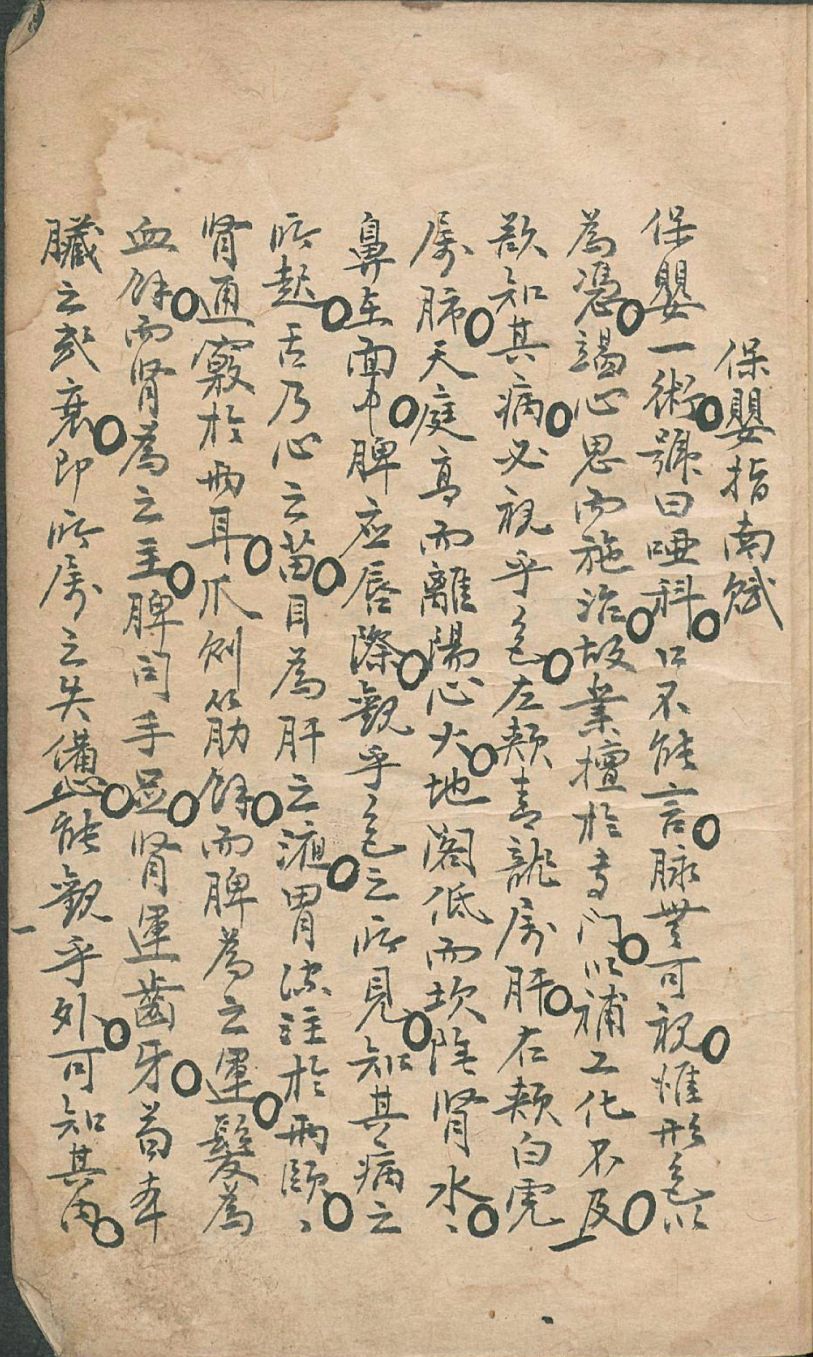 保嬰指南賦
保嬰一術○號曰啞科○口不能言○脉無可視○惟形色以
為憑○竭心思而施治○故業擅於專門○以補工化不及○
欲知其病○必視乎色○左頰青龍屬肝○右頰白虎
屬肺○天庭高而離陽心火○地閣低而坎陰腎水○
鼻在面中○脾应唇際○觀乎色之所見○知其病之
所起○舌乃心之苗○目為肝之液○胃流注於両頤○
腎通竅於両耳○爪則筋餘○而脾為之運○髮為
血餘○而腎為之主○脾司手足○腎運齒牙○苟本
臟之或衰○即所屬之失備○能觀乎外○可知其內○